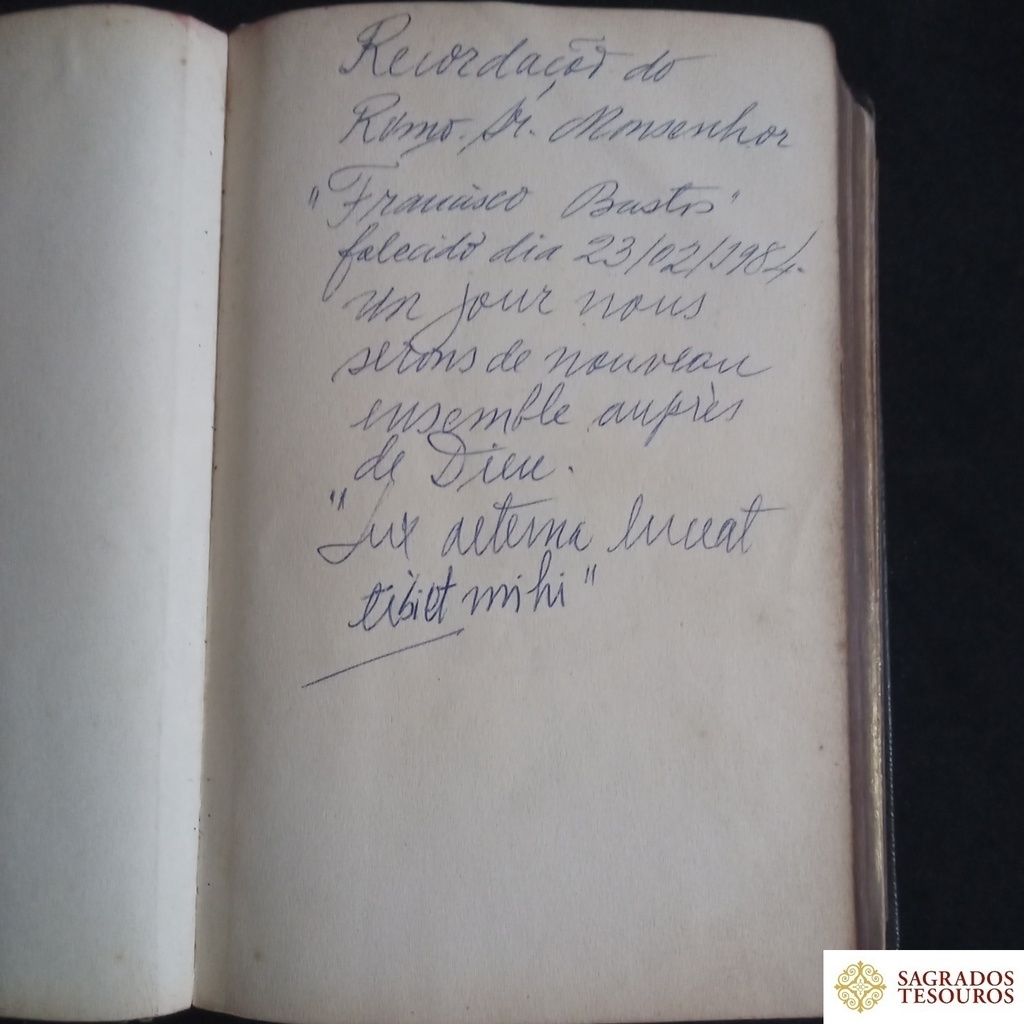 Recordação do
Rvmo. Sr. Monsenhor
"Francisco Bastos"
falecido dia 23/02/1984.
Un jour nous
serons de nouveau
ensemble auprès
de Dieu.
"Lux aeterna luceat
tibi et mihi"
SAGRADOS
TESOUROS